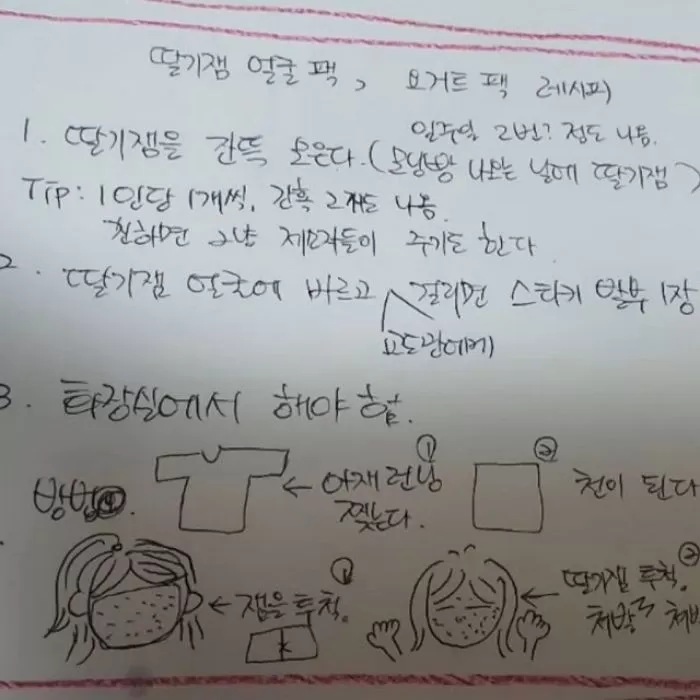 딸기잼 얼굴 팩, 요거트 팩 레시피)
일주일 2번? 정도 나옴.
1. 딸기잼을 잔뜩 모은다. (모닝빵 나오는 날에 딸기잼)
Tip: 1인당 1개씩. 간혹 2개도 나옴.
친하면 그냥 제모자들이 주기도 한다.
2. 딸기잼 얼굴에 바르고 걸리면 스티커 발부 1장
(교도관에게)
3. 화장실에서 해야 함.
방법 ①
← 아재 런닝 찢는다.
② 천이 된다
① ← 잼을 투척.
② ← 딸기잼 투척.